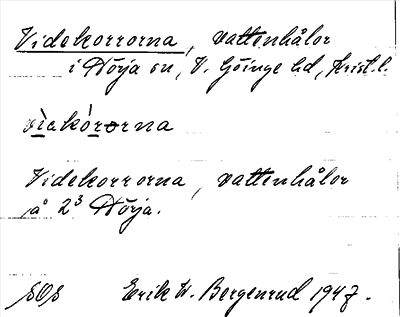 Videkorrorna, vattenhålor
i Nörja sn, V. Göinge hd, Krist. l.
vìdekórorna
Videkorrorna, vattenhålor
å 2³ Nörja.
SOS Erik W. Bergenrud 1947.